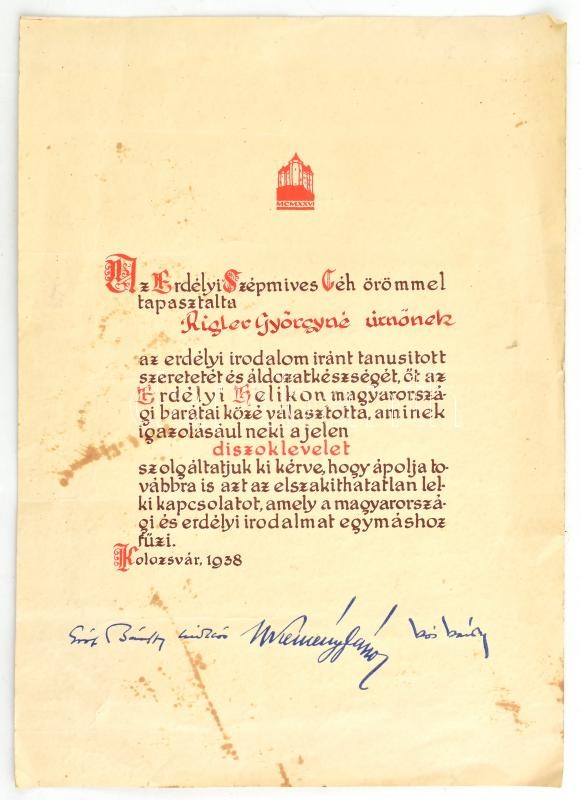 MCMXXVI
Az Erdélyi Szépmives Céh örömmel
tapasztalta
Rigler Györgyné úrnőnek
az erdélyi irodalom iránt tanusitott
szeretetét és áldozatkészségét, őt az
Erdélyi Helikon magyarorszá-
gi barátai közé választotta, aminek
igazolásául neki a jelen
diszoklevelet
szolgáltatjuk ki kérve, hogy ápolja to-
vábbra is azt az elszakithatatlan lel-
ki kapcsolatot, amely a magyarorszá-
gi és erdélyi irodalmat egymáshoz
fűzi.
Kolozsvár, 1938
Gróf Bánffy Miklós Kemény János Kós Károly